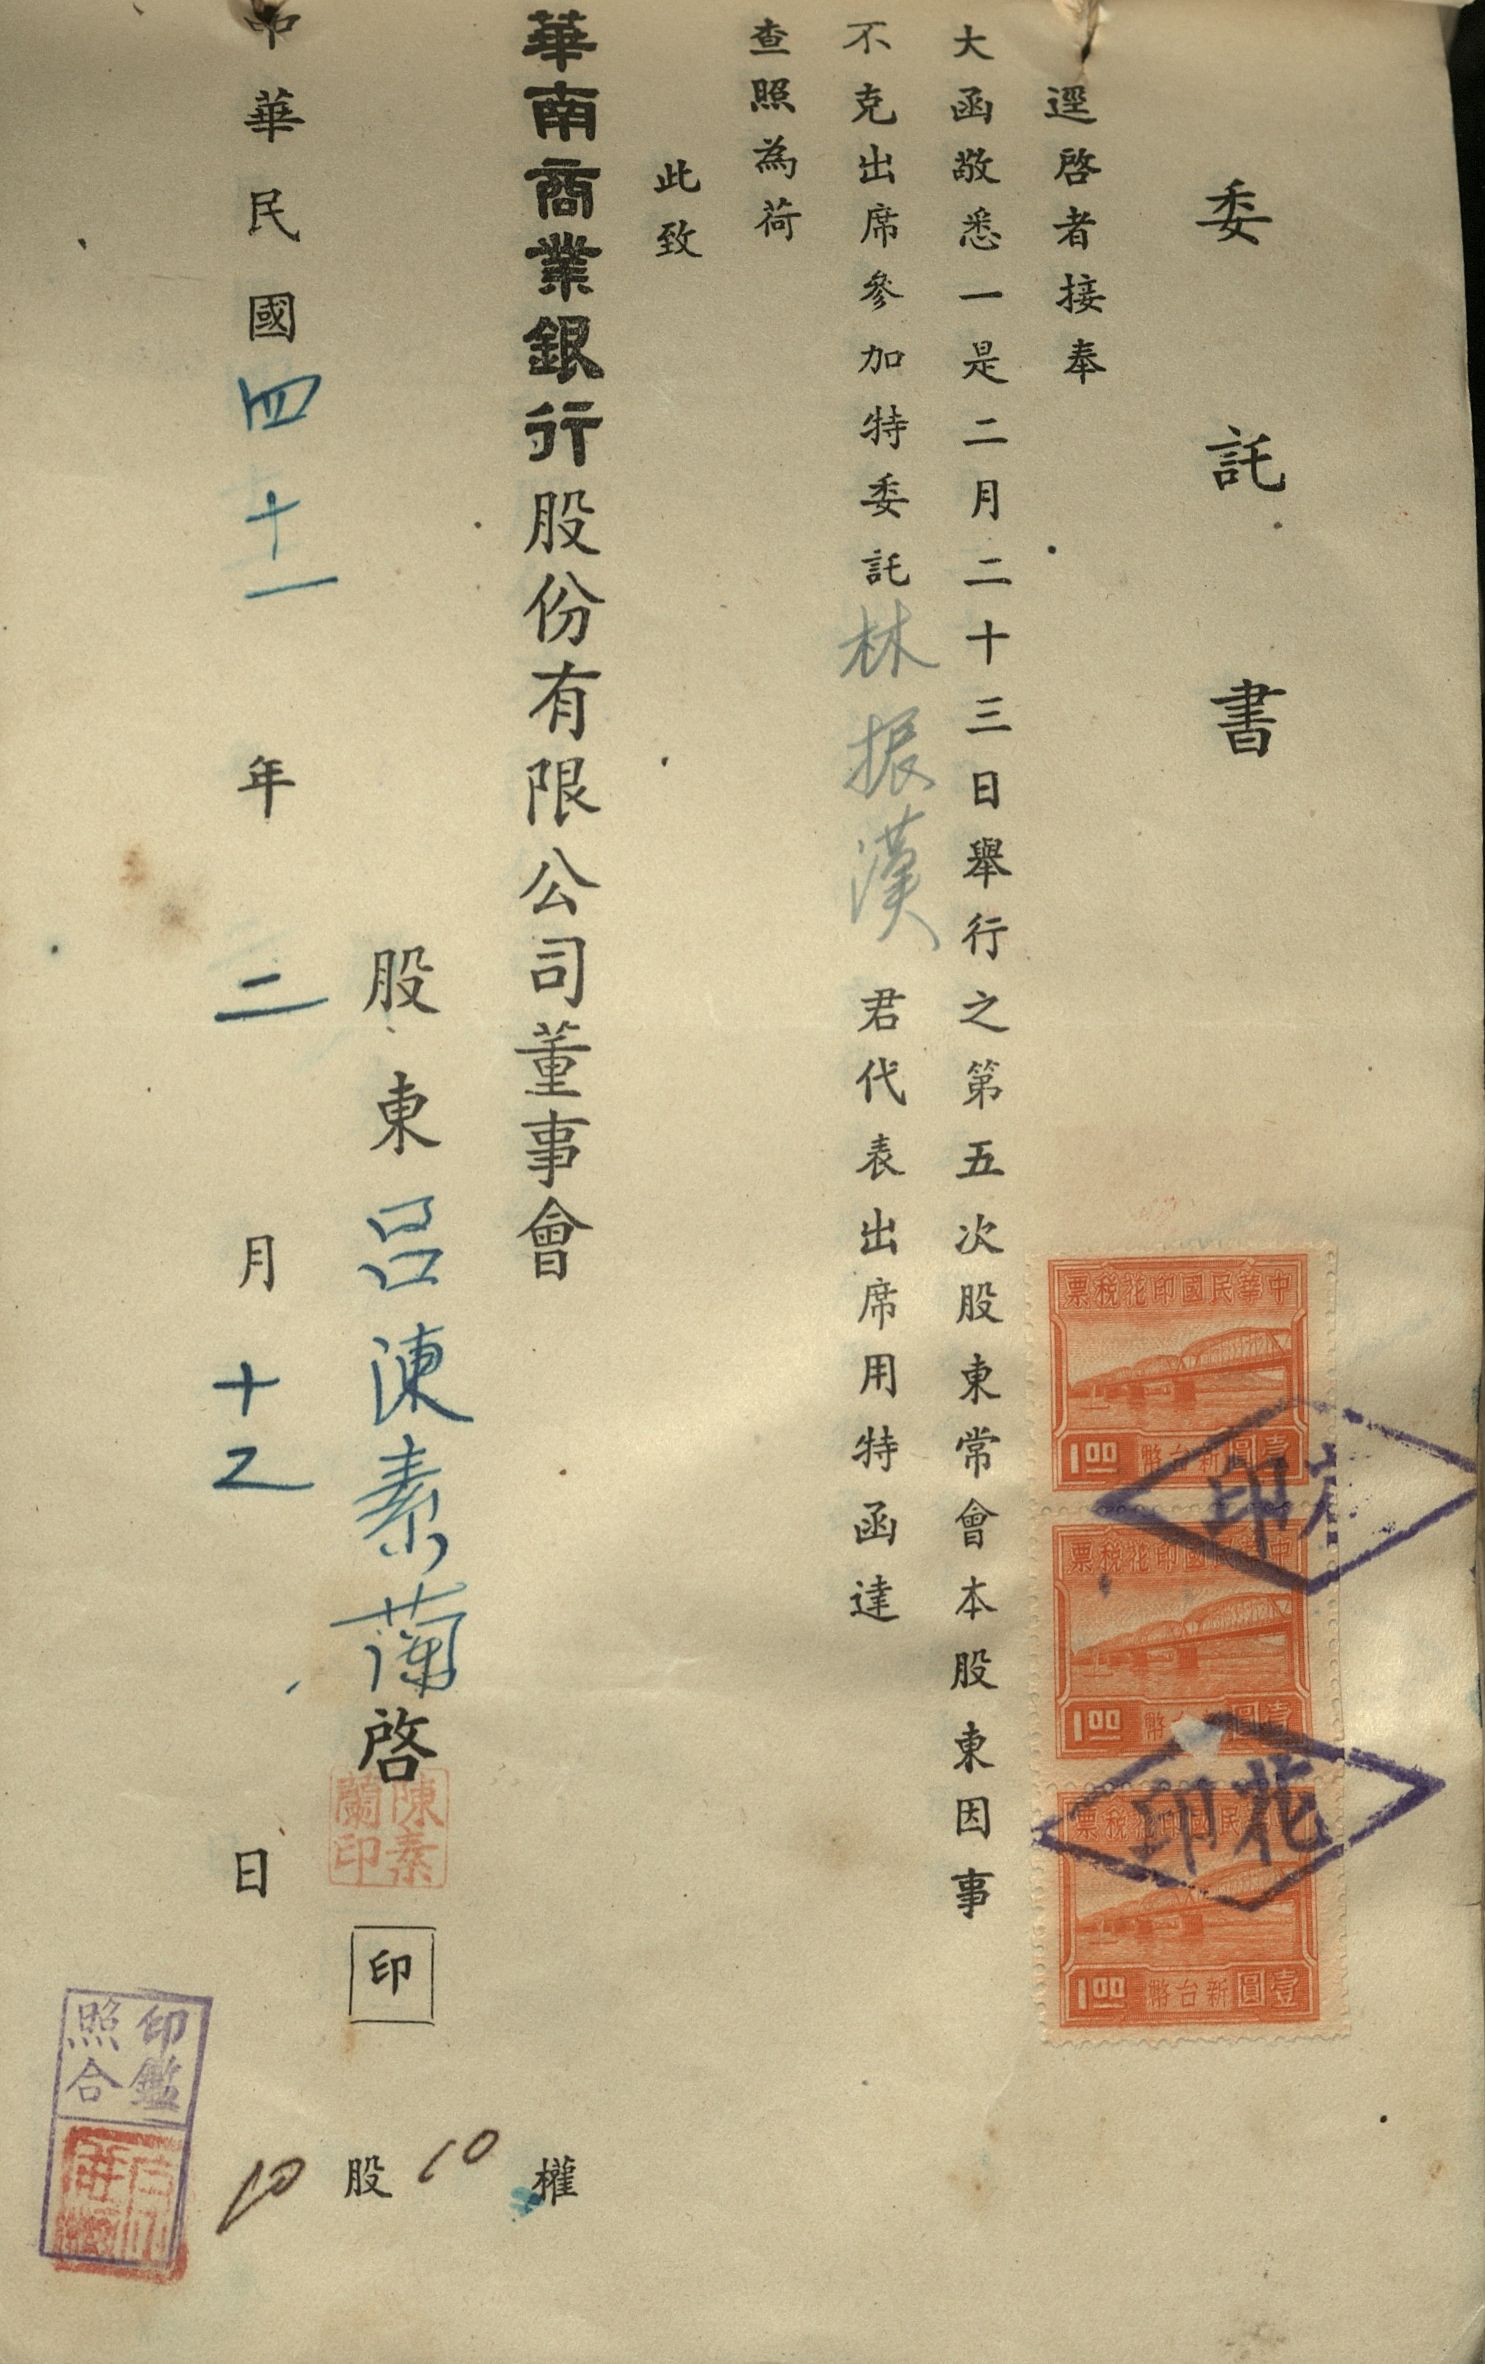 委託書
逕啓者接奉
大函敬悉一是二月二十三日舉行之第五次股東常會本股東因事
不克出席參加特委託林振漢君代表出席用特函達
查照為荷
此致
華南商業銀行股份有限公司董事會
股東呂陳素蘭啓
印
陳素蘭印
中華民國四十一年二月十乙日
10股10權
中華民國印花稅票
壹圓新台幣
1.00
中華民國印花稅票
壹圓新台幣
1.00
中華民國印花稅票
壹圓新台幣
1.00
印花
印花
印鑑照合